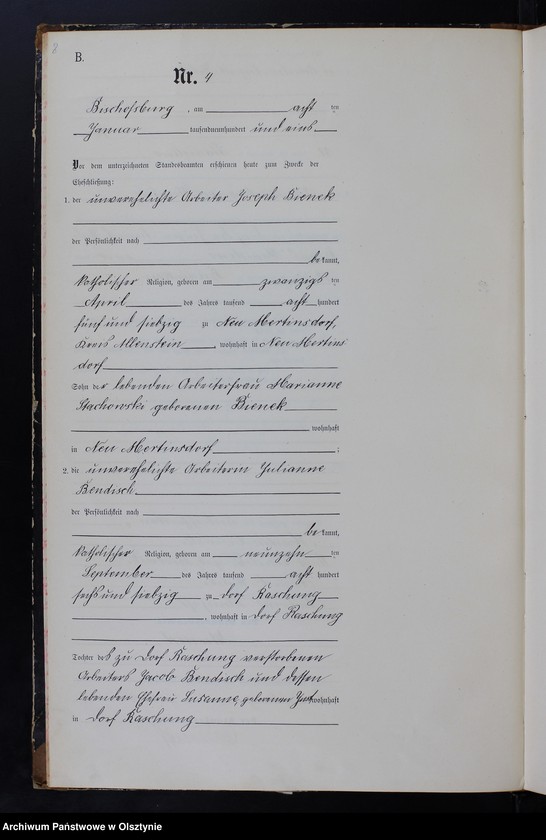 8
B.
Nr. 4
Bischofsburg, am acht ten
Januar tausendneunhundert und eins
Vor dem unterzeichneten Standesbeamten erschienen heute zum Zwecke der
Eheschließung:
1. der unverehelichte Arbeiter Joseph Bienek
der Persönlichkeit nach
be kannt,
katholischer Religion, geboren am zwanzigs ten
April des Jahres tausend acht hundert
fünf und siebzig zu Neu Mertinsdorf,
Kreis Allenstein, wohnhaft in Neu Mertins
dorf
Sohn der lebenden Arbeiterfrau Marianne
Stachowski geborenen Bienek
wohnhaft
in Neu Mertinsdorf;
2. die unverehelichte Arbeiterin Julianne
Bendisch
der Persönlichkeit nach
be kannt,
katholischer Religion, geboren am neunzehn ten
September des Jahres tausend acht hundert
sechs und siebzig zu Dorf Raschung
, wohnhaft in Dorf Raschung
Tochter des zu Dorf Raschung verstorbenen
Arbeiters Jacob Bendisch und dessen
lebenden Ehefrau Susanne, geborenen wohnhaft
in Dorf Raschung
Archiwum Państwowe w Olsztynie